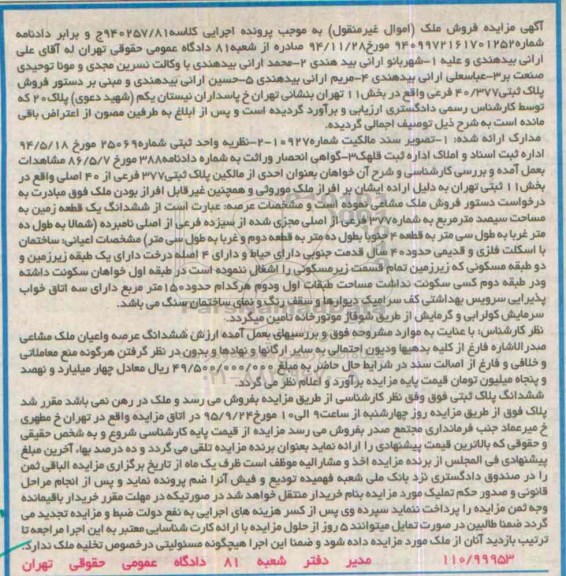 آگهی مزایده فروش ملک (اموال غیرمنقول) به موجب پرونده اجرایی کلاسه۹۴۰۲۵۷/۸۱ج و برابر دادنامه
شماره۹۴۰۹۹۷۲۱۶۱۷۰۱۲۵۲ مورخ۹۴/۱۱/۲۸ صادره از شعبه۸۱ دادگاه عمومی حقوقی تهران له آقای علی
ارانی بیدهندی و علیه ۱-شهربانو ارانی بید هندی ۲-محمد ارانی بیدهندی با وکالت نسرین مجدی و مونا توحیدی
صنعت بر۳-عباسعلی ارانی بیدهندی ۴-مریم ارانی بیدهندی ۵-حسین ارانی بیدهندی و مبنی بر دستور فروش
پلاک ثبتی۴۰/۳۷۷ فرعی واقع در بخش۱۱ تهران بنشانی تهران خ پاسداران نیستان یکم (شهید دعوی) پلاک۲۰ که
توسط کارشناس رسمی دادگستری ارزیابی و برآورد گردیده است و پس از ابلاغ به طرفین مصون از اعتراض باقی
مانده است به شرح ذیل توصیف اجمالی گردیده.
مدارک ارائه شده: ۱-تصویر سند مالکیت شماره۱۰۹۲۷-۲-نظریه واحد ثبتی شماره۲۵۰۶۹ مورخ ۹۴/۵/۱۸
اداره ثبت اسناد و املاک اداره ثبت قلهک۳-گواهی انحصار وراثت به شماره دادنامه۳۸۸ مورخ ۸۶/۵/۷ مشاهدات
بعمل آمده و بررسی کارشناسی و شرح آن خواهان بعنوان احدی از مالکین پلاک ثبتی۳۷۷ فرعی از ۴۰ اصلی واقع در
بخش۱۱ ثبتی تهران به دلیل اراده ایشان بر افراز ملک موروثی و همچنین غیرقابل افراز بودن ملک فوق مبادرت به
درخواست دستور فروش ملک مشاعی نموده است و مشخصات عرصه: عبارت است از ششدانگ یک قطعه زمین به
مساحت سیصد مترمربع به شماره۳۷۷ فرعی از اصلی مجزی شده از سیزده فرعی از اصلی نامبرده (شمالا به طول ده
متر غربا به طول سی متر به قطعه ۴ جنوبا بطول ده متر به قطعه دوم و غربا به طول سی متر) مشخصات اعیانی: ساختمان
با اسکلت فلزی و قدیمی حدود۴۰ سال قدمت جنوبی دارای حیاط و دارای ۴ اصله درخت دارای یک طبقه زیرزمین و
دو طبقه مسکونی که زیرزمین تمام قسمت زیرمسکونی را اشغال ننموده است در طبقه اول خواهان سکونت داشته
ودر طبقه دوم کسی سکونت نداشت مساحت طبقات اول ودوم هرکدام حدود۱۵۰متر مربع دارای سه اتاق خواب
پذیرایی سرویس بهداشتی کف سرامیک دیوارها و سقف رنگ و نمای ساختمان سنگ می باشد.
سرمایش کولرابی و گرمایش از طریق شوفاژ موتورخانه تامین میگردد.
نظر کارشناس: با عنایت به موارد مشروحه فوق و بررسیهای بعمل آمده ارزش ششدانگ عرصه واعیان ملک مشاعی
صدرالاشاره فارغ از کلیه بدهیها ودیون احتمالی به سایر ارگانها و نهادها و بدون در نظر گرفتن هرگونه منع معاملاتی
و خلافی و فارغ از اصالت سند در شرایط حال حاضر به مبلغ ۴۹/۵۰۰/۰۰۰/۰۰۰ ریال معادل چهار میلیارد و نهصد
و پنجاه میلیون تومان قیمت پایه مزایده برآورد و اعلام نظر می گردد.
ششدانگ پلاک ثبتی فوق وفق نظر کارشناسی از طریق مزایده بفروش می رسد و ملک در رهن نمی باشد مقرر شد
پلاک فوق از طریق مزایده روز چهارشنبه از ساعت۹ الی۱۰ مورخ۹۵/۹/۲۴ در اتاق مزایده واقع در تهران خ مطهری
خ میرعماد جنب فرمانداری مجتمع صدر بفروش می رسد مزایده از قیمت پایه کارشناسی شروع و به شخص حقیقی
و حقوقی که بالاترین قیمت پیشنهادی را ارائه نماید بعنوان برنده مزایده تلقی می گردد و ده درصد بها، آخرین مبلغ
پیشنهادی فی المجلس از برنده مزایده اخذ و مشارالیه موظف است ظرف یک ماه از تاریخ برگزاری مزایده الباقی ثمن
را در صندوق دادگستری نزد بانک ملی شعبه فهمیده تودیع و فیش آنرا ضم پرونده نماید و پس از انجام مراحل
قانونی و صدور حکم تملیک مورد مزایده بنام خریدار منتقل خواهد شد در صورتیکه در مهلت مقرر خریدار باقیمانده
وجه ثمن مزایده را پرداخت ننماید سپرده وی پس از کسر هزینه های اجرایی به نفع دولت ضبط و مزایده تجدید می
گردد ضمنا طالبین در صورت تمایل میتوانند ۵ روز از حلول مزایده با ارائه کارت شناسایی معتبر به این اجرا مراجعه تا
ترتیب بازدید آنان از ملک مورد مزایده داده شود و ضمنا این اجرا هیچگونه مسئولیتی درخصوص تخلیه ملک ندارد.
۱۱۰/۹۹۹۵۳ مدیر دفتر شعبه ۸۱ دادگاه عمومی حقوقی تهران